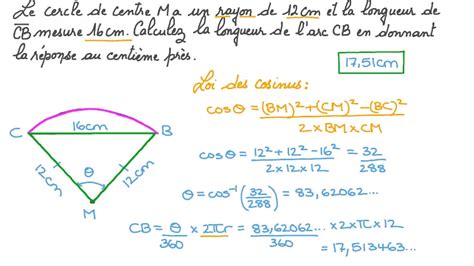 Le cercle de centre M a un rayon de 12cm et la longueur de
CB mesure 16cm. Calculez la longueur de l'arc CB en donnant
la réponse au centième près.
17,51cm
Loi des cosinus:
cosθ = (BM)²+(CM)²-(BC)²
2×BM×CM
C
16cm
B
12cm
θ
12cm
M
cosθ = 12²+12²-16² = 32
2×12×12 288
θ = cos⁻¹(32/288) = 83,62062...
CB = θ × 2πr = 83,62062... × 2×π×12
360 360
= 17,513463...